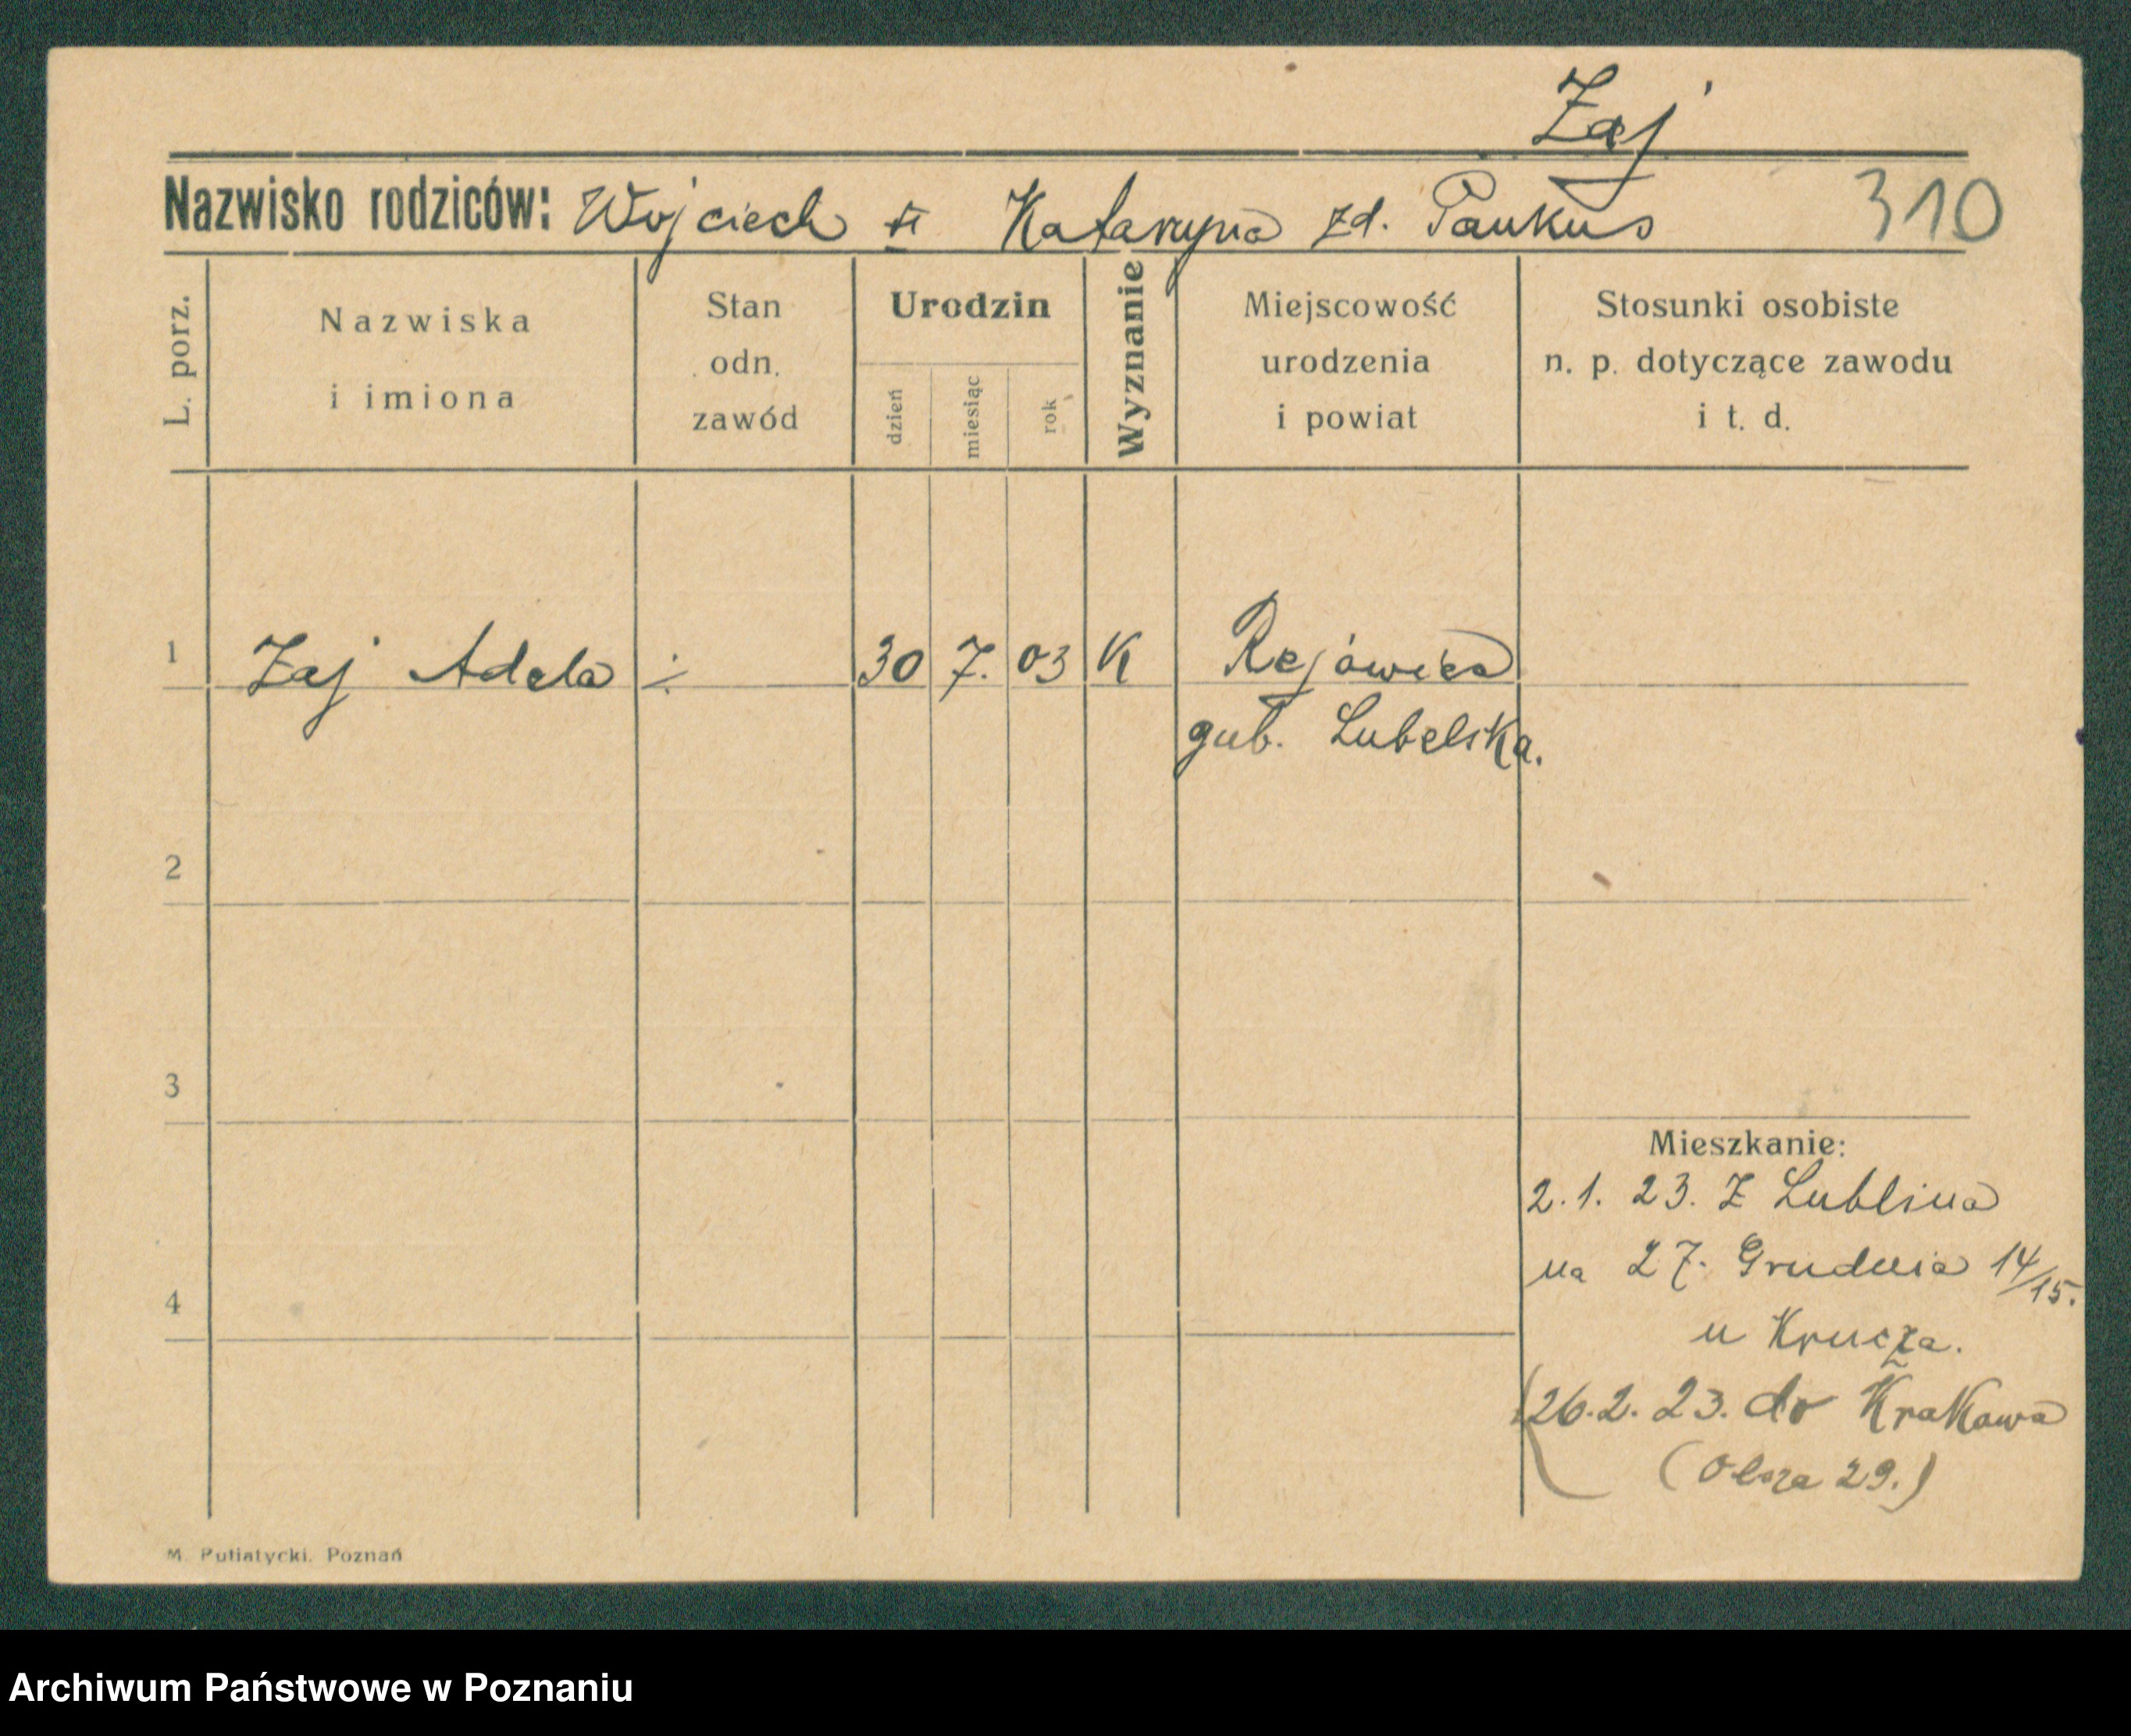 Zaj
Nazwisko rodziców: Wojciech i Katarzyna zd. Paukus 310
L. porz.
Nazwiska
i imiona
Stan
odn.
zawód
Urodzin
dzień
miesiąc
rok
Wyznanie
Miejscowość
urodzenia
i powiat
Stosunki osobiste
n. p. dotyczące zawodu
i t. d.
1 Zaj Adela ÷ 30 7. 03 K Rejowiec
gub. Lubelska.
2
3
Mieszkanie:
2.1. 23. Z Lublina
na 27. Grudnia 14/15.
4
u Krucza.
26.2.23. do Krakowa
(Olsza 29.)
M. Putiatycki. Poznań
Archiwum Państwowe w Poznaniu